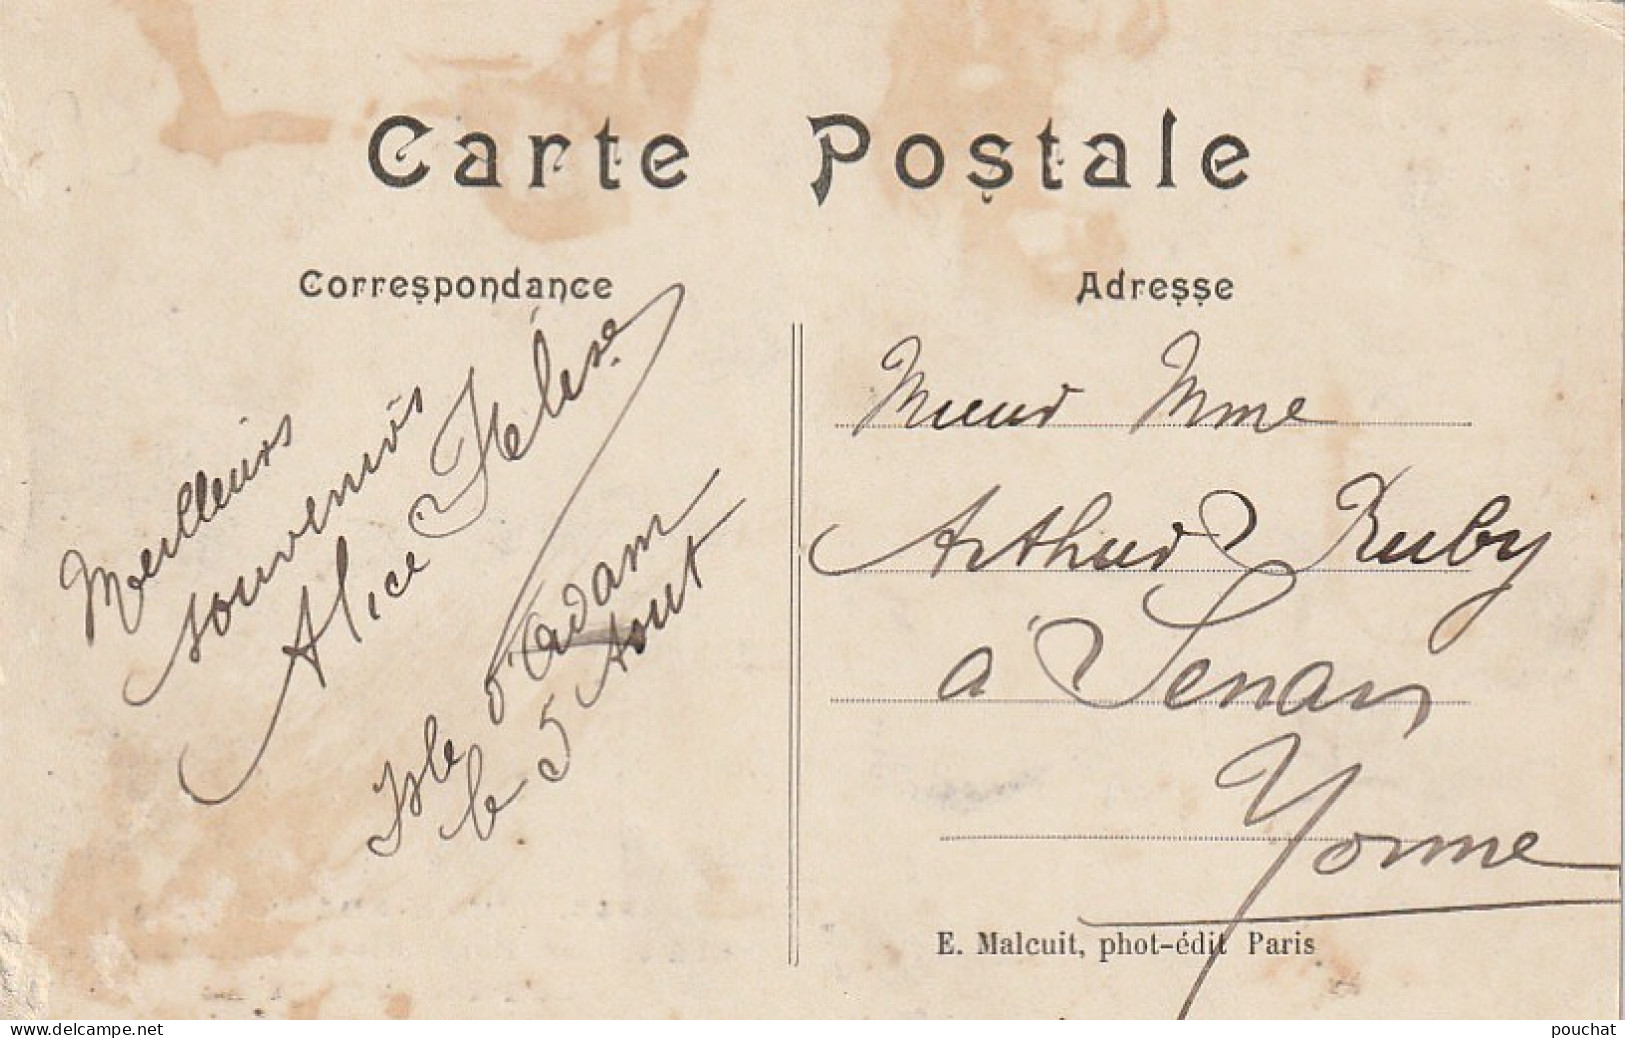 Carte Postale
Correspondance
Meilleurs
souvenirs
Alice
Isle d'Adam
le 5 Aout
Adresse
Mme
Arthur Ruby
à Senan
Yonne
E. Malcuit, phot-édit Paris
www.delcampe.net
pouchat